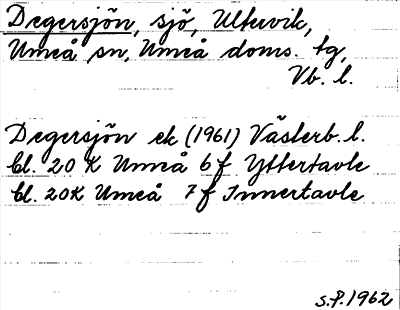 Degersjön, sjö, Ultervik,
Umeå sn, Umeå doms. tg,
Vb. l.
Degersjön ek (1961) Västerb. l.
bl. 20 K Umeå 6 f Yttertavle
bl. 20K Umeå 7 f Innertavle
S.P. 1962